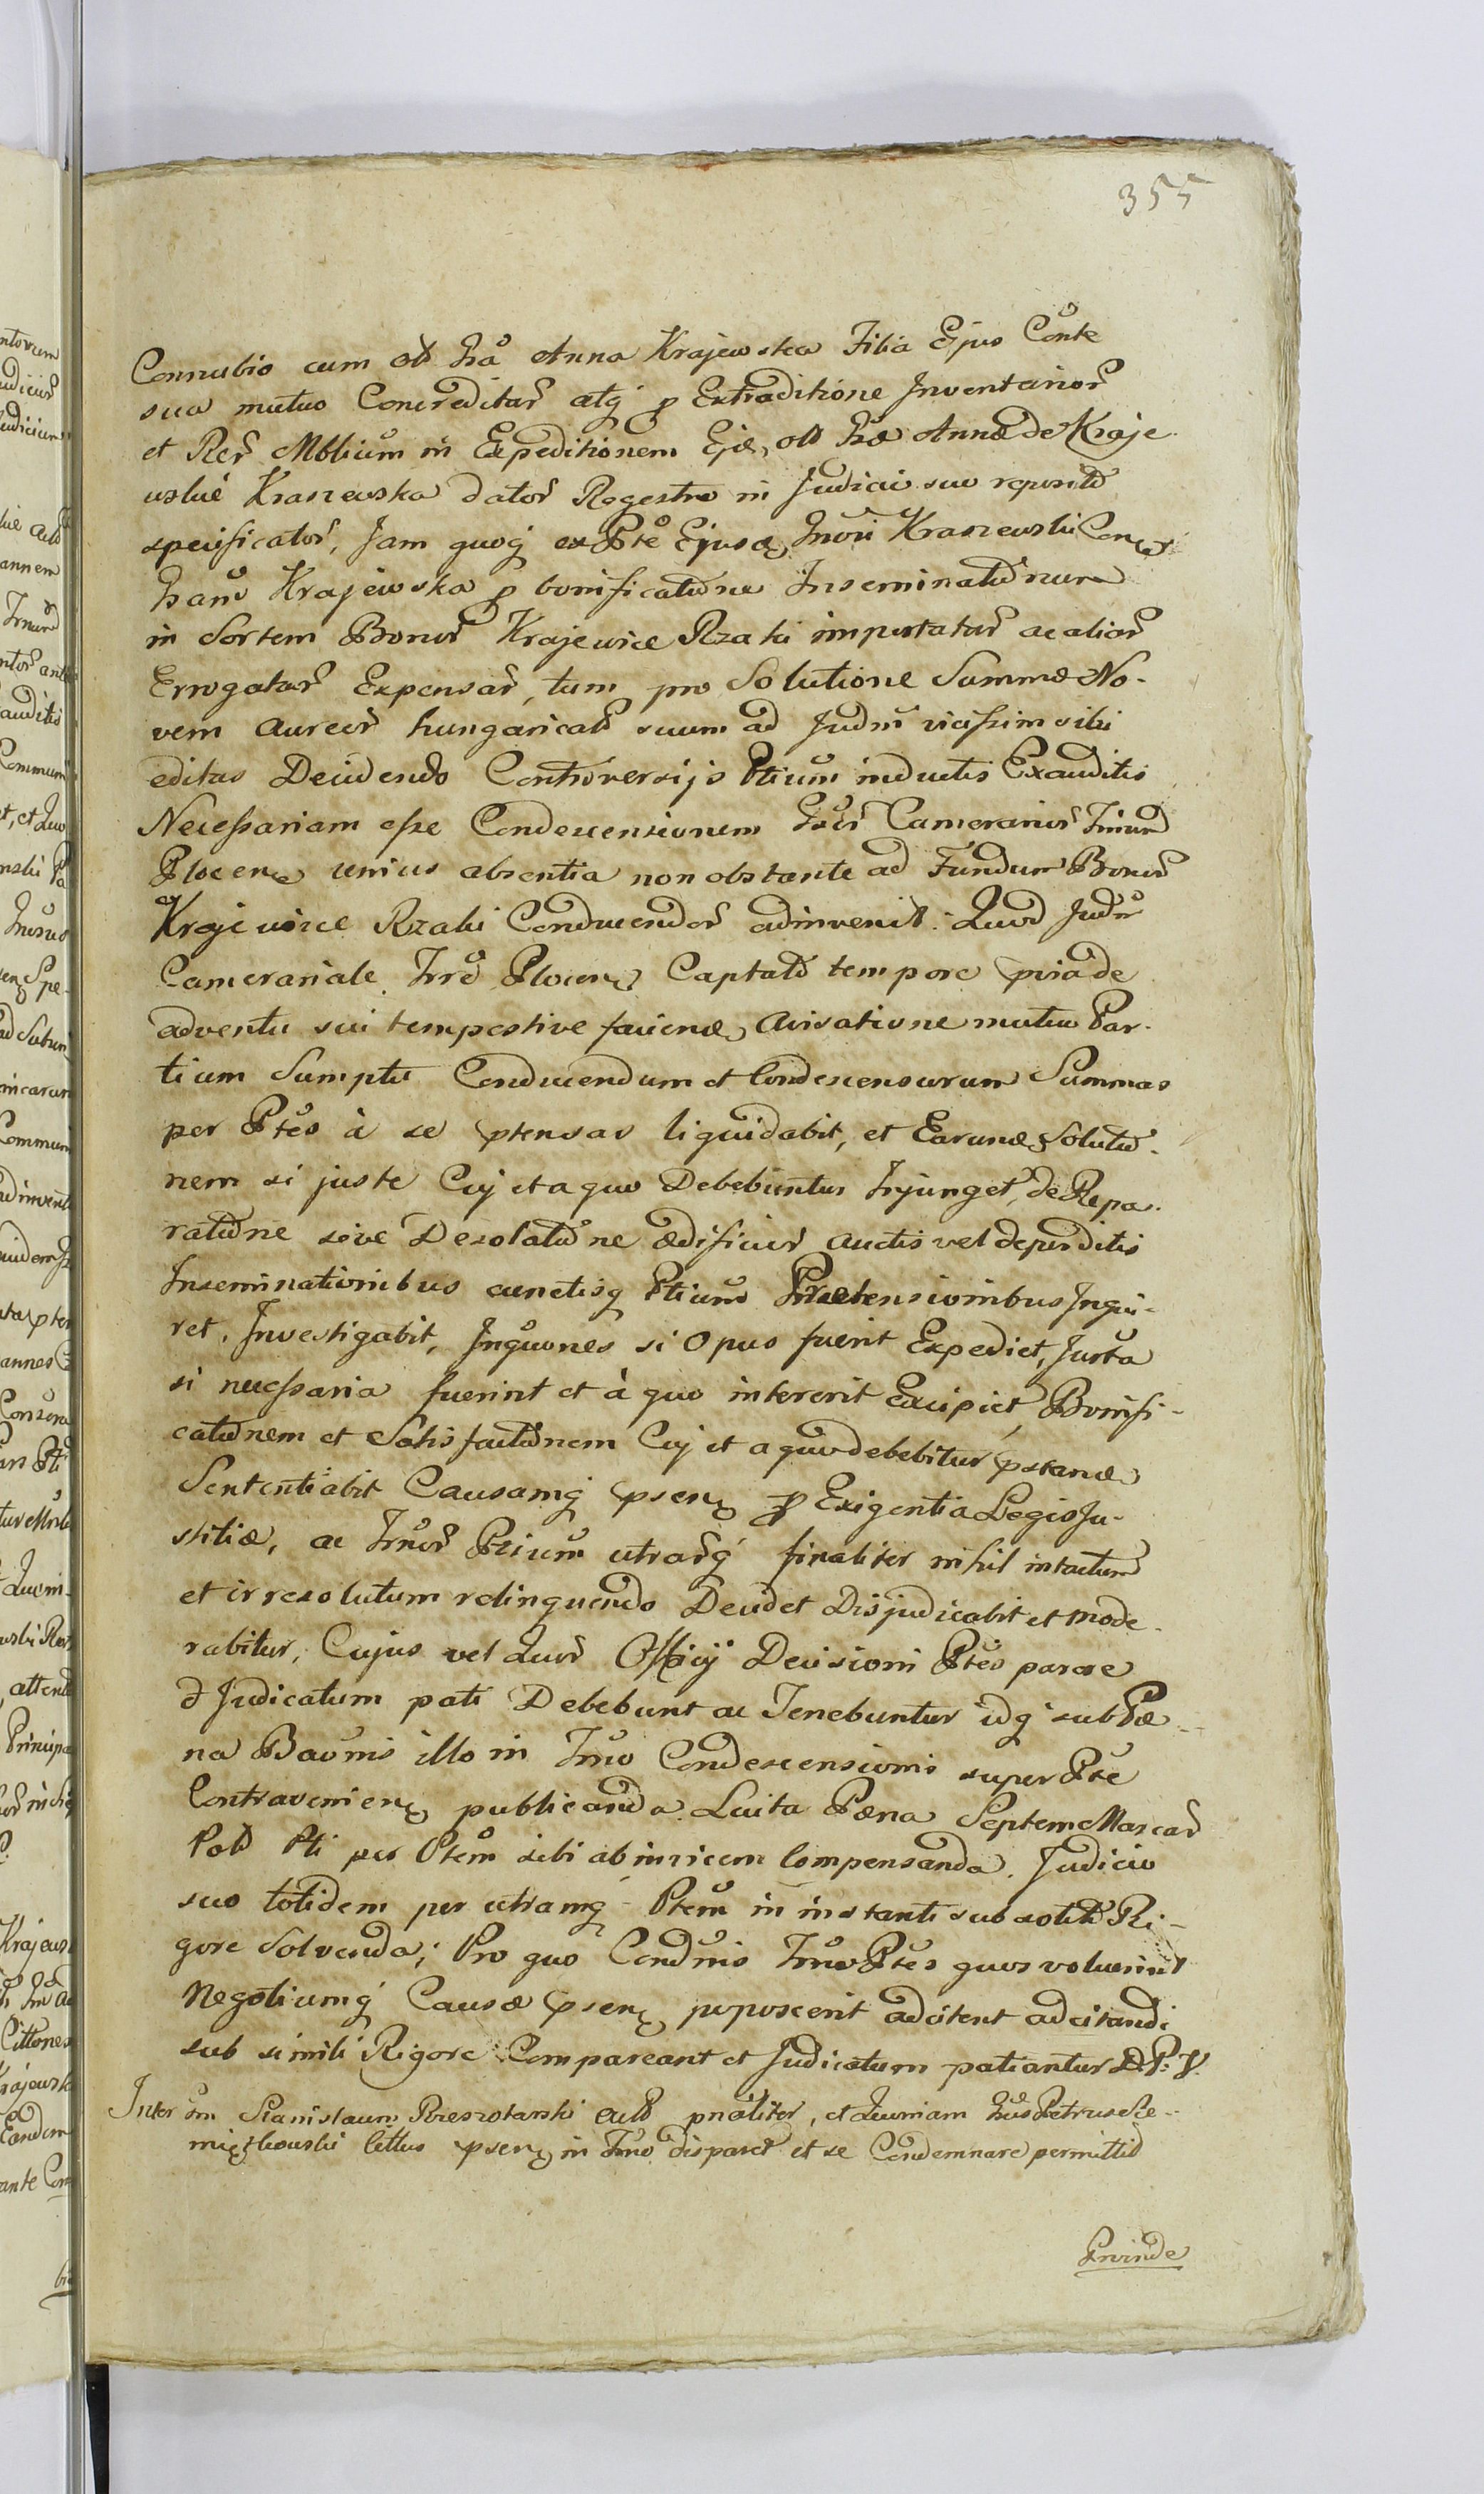 355
Connubio cum olt Gsa Anna Krajewska Filia Ejus Conte
sua mutuo Concreditar atq p Extraditione Inventarior
et Rer Mblium in Expeditionem Ejd, olt Gsæ Annæ de Kraje
wskie Kraszewska dator Regestro in Judicio suo reposito
specificator, Jam quoq ex Pte Ejusd Gnosi Kraszewski Concer
Gsam Krajewska p bonificatione Inseminationum
in Sortem Bonor Krajewice Rzaki importatar ac alior
Errogatar Expensar, tum pro Solutione Summæ No-
vem Aureor hungarical suum ad Judm vicissim sibi
editas Deidendo Controversijs Ptium inductis Exauditis
Necessariam esse Condescensionem Gsor Camerarior Trrum
Plocen unius absentia non obstante ad Fundum Bonor
Krajewice Rzaki Conducendor adinvenit. Quod Judm
Camerariale Trre Plocen Captato tempore pria de
adventu sui tempestive faciend avisatione mutuo Par-
tium Sumptu Conducendum et Condescensurum Summas
per Ptes à se ptensas liquidabit, et Earund Solutio-
nem si juste Cuj et a quo Debebuntur Injunget, de Repa-
ratione sive Desolatione ædificior auctis vel deperditis
Inseminationibus cunctisq Ptium Prætensionibus Inqui-
ret, Investigabit, Inquones si Opus fuerit Expediet, Jurta
si necessaria fuerint et à quo intererit Excipiet, Bonifi-
cationem et Satisfactionem Cuj et a quo debebitur pstand
Sententiabit Causamq psen p Exigentia Legis Ju-
stitiæ, ac Trnor Ptium utrarq finaliter nihil intactum
et irresolutum relinquendo Decidet Disjudicabit et mode-
rabitur, Cujus vel Quor Officij Decisioni Ptes parere
d Judicatum pati Debebunt ac Tenebuntur idq sub Pæ-
na Baonis illo in Trno Condescensionis super Pte
Contravenien publicanda. Luita Pæna Septem Marcar
Pol Pti per Ptem sibi ab invicem Compensanda. Judicio
suo totidem per utramq Ptem in instanti sub solito Ri-
gore Solvenda; Pro quo Condnis Trno Ptes quos voluerint
Negotiumq Causæ psen poposcerit adcitent adcitandi
sub simili Rigore Compareant et Judicatum patiantur D. P. V.
Inter Gm Stanislaum Rzeszotarski actl pnaliter, et Quoniam Gsus Petrus Sie-
miątkowski Citus psen in Trno disparet et se Condemnare permittit
Proinde